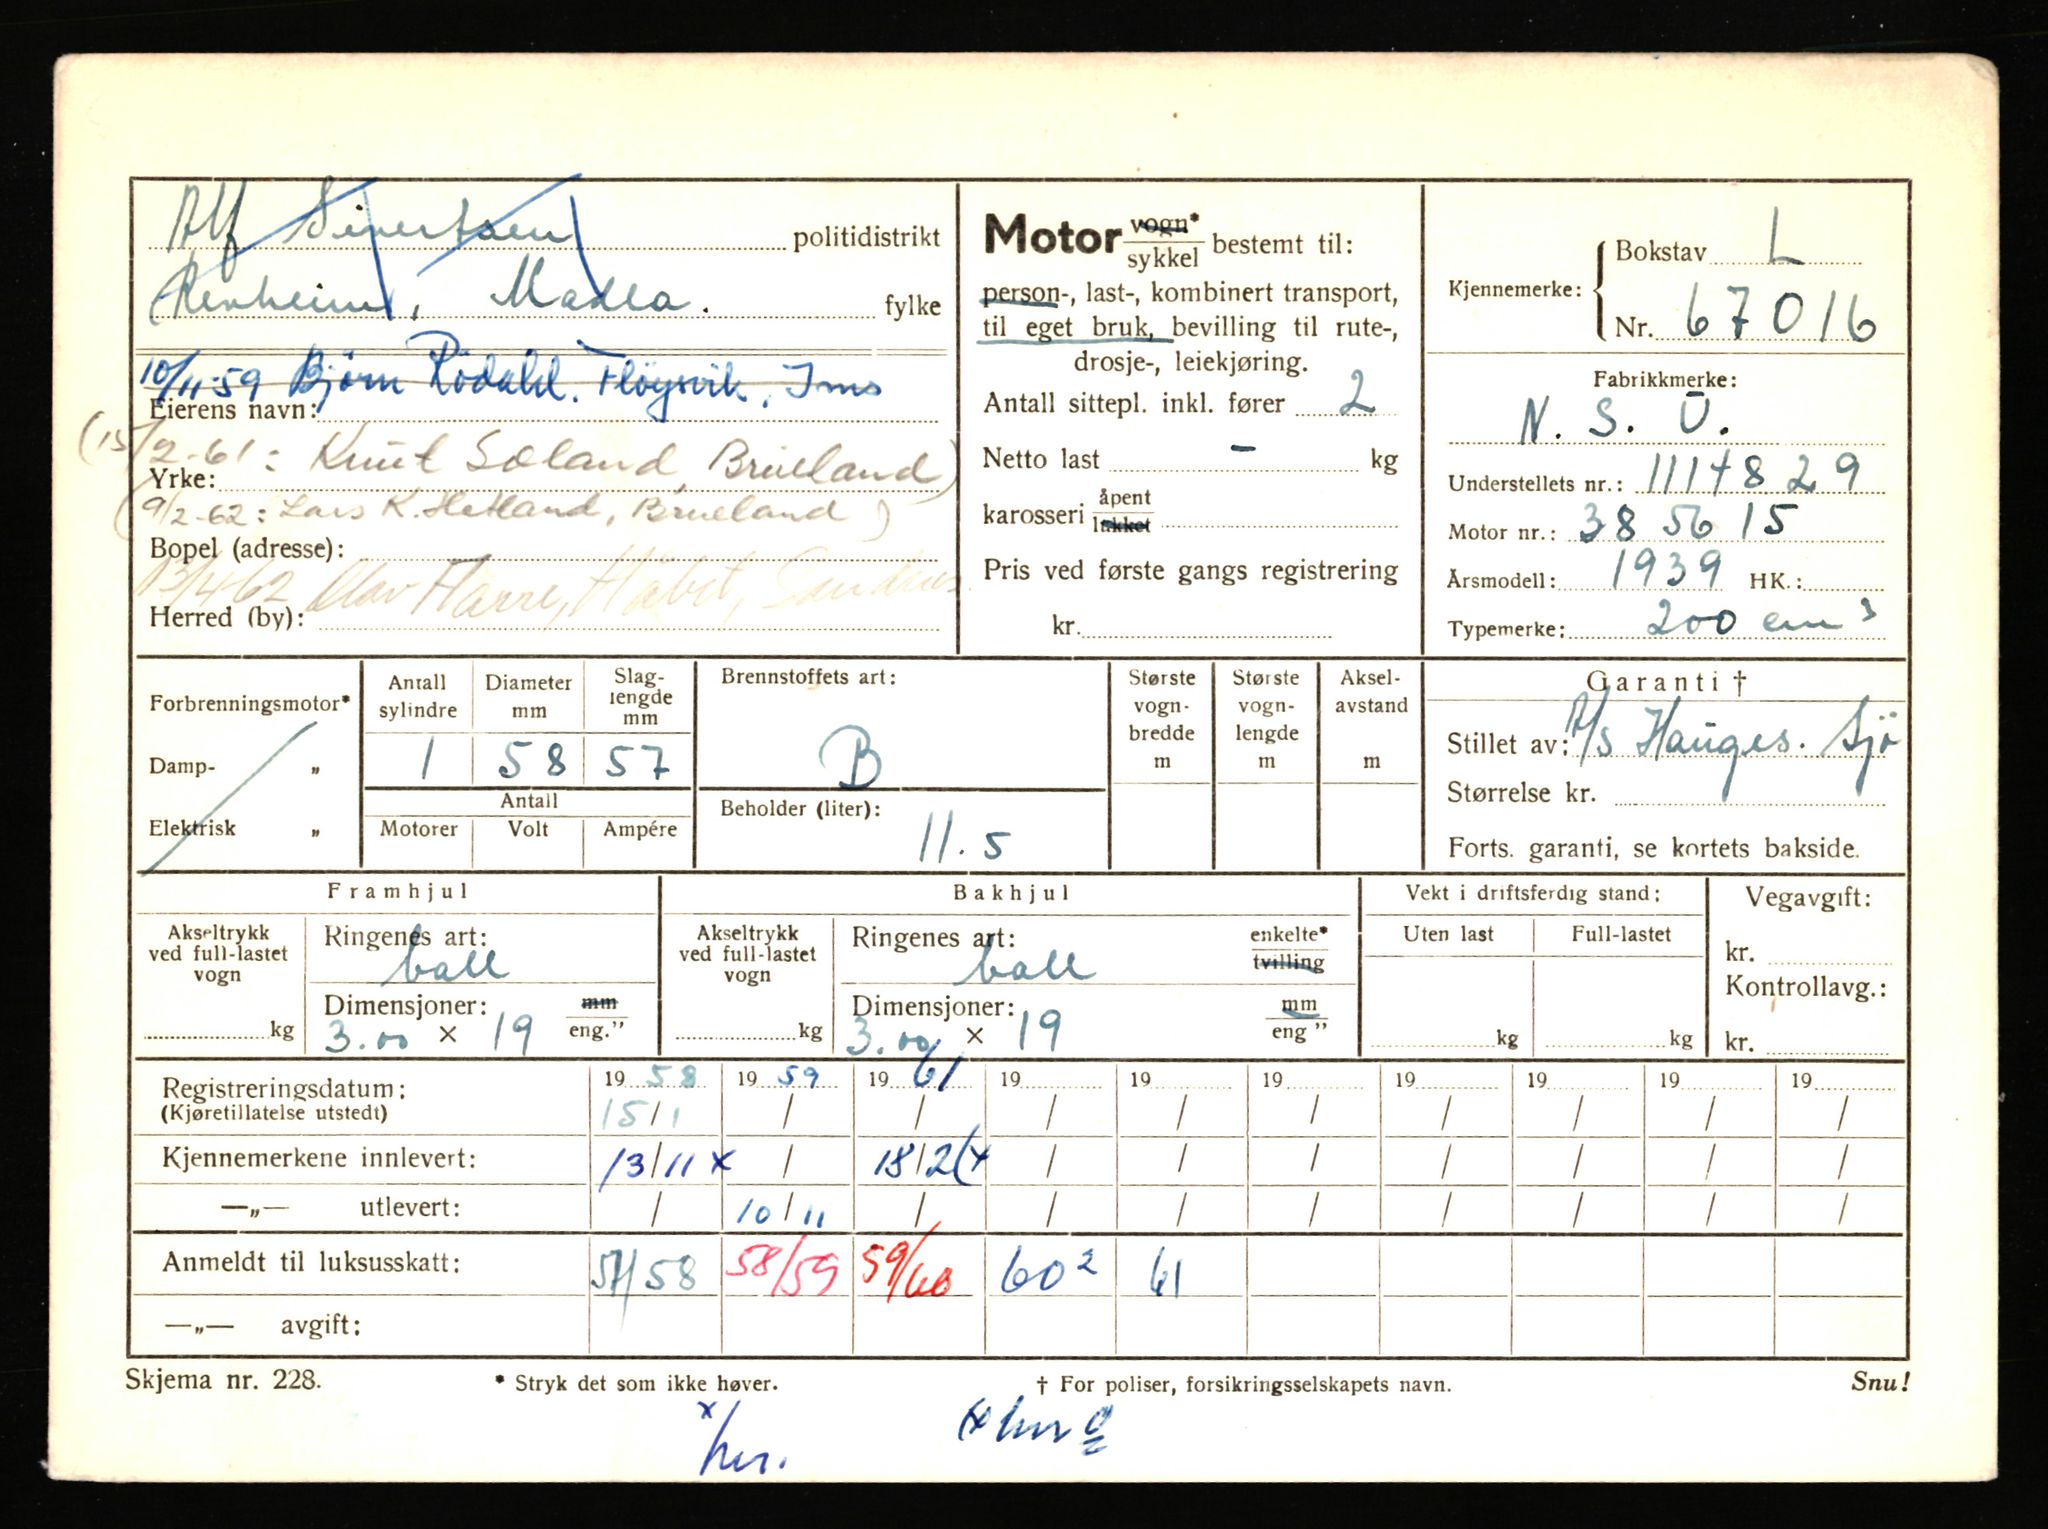 Alf Sivertsen politidistrikt
Revheim, Madla. fylke
10/11-59 Bjørn Rödahl. Fløysvik, Ims
Eierens navn:
(15/2-61: Knut Søland, Brueland)
Yrke:
(9/2-62: Lars K. Hetland, Brueland)
Bopel (adresse):
13/4-62 Olav Harre, Håbet, Sandnes
Herred (by):
Motor vogn* sykkel bestemt til:
person-, last-, kombinert transport,
til eget bruk, bevilling til rute-,
drosje-, leiekjøring.
Antall sittepl. inkl. fører 2
Netto last - kg
karosseri åpent lukket
Pris ved første gangs registrering
kr.
Kjennemerke: Bokstav L
Nr. 67016
Fabrikkmerke:
N. S. U.
Understellets nr.: 1114829
Motor nr.: 385615
Årsmodell: 1939 HK.:
Typemerke: 200 cm³
Forbrenningsmotor*
Damp- „
Elektrisk „
Antall sylindre Diameter mm Slaglengde mm
1 58 57
Antall
Motorer Volt Ampére
Brennstoffets art:
B
Beholder (liter):
11.5
Største vogn-bredde m
Største vogn-lengde m
Aksel-avstand m
Garanti †
Stillet av: A/S Hauges. Sjö
Størrelse kr.
Forts. garanti, se kortets bakside.
Framhjul
Akseltrykk ved full-lastet vogn
kg
Ringenes art:
ball
Dimensjoner: mm
3.00 × 19 eng.”
Bakhjul
Akseltrykk ved full-lastet vogn
kg
Ringenes art: enkelte*
ball tvilling
Dimensjoner: mm
3.00 × 19 eng ”
Vekt i driftsferdig stand:
Uten last Full-lastet
kg kg
Vegavgift:
kr.
Kontrollavg.:
kr.
Registreringsdatum: 19 58 19 59 19 61 19 19 19 19 19 19 19
(Kjøretillatelse utstedt) 15/1 / / / / / / / / /
Kjennemerkene innlevert: 13/11 x / 18/2 (x / / / / / / /
—„— utlevert: / 10/11 / / / / / / / /
Anmeldt til luksusskatt: 57/58 58/59 59/60 60² 61
—„— avgift:
Skjema nr. 228. * Stryk det som ikke høver. † For poliser, forsikringsselskapets navn. Snu!
x/her.
(x her